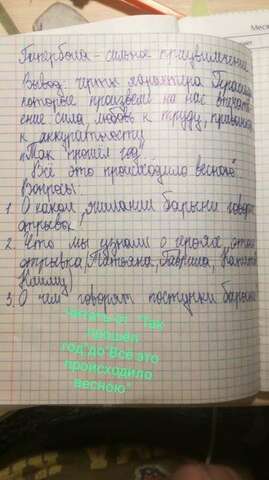 Гипербола - сильное преувеличение
Вывод: черты характера Герасима
которые произвели на нас впечатл
ение сила, любовь к труду, привычка
к аккуратности
"Так прошёл год"
Всё это происходило весною"
Вопросы:
1. О каком желании барыни говорит
отрывок
2. Что мы узнали о героях этого
отрывка (Татьяна, Гаврила, Капитон
Климу)
3. О чём говорят поступки барыни
читать от "Так
прошёл
год"до"Всё это
происходило
весною"